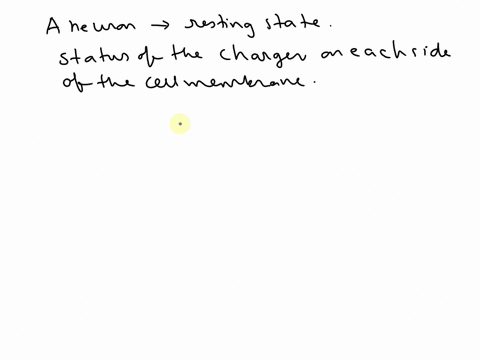 A neuron → resting state.
status of the charger on each side
of the cell membrane.